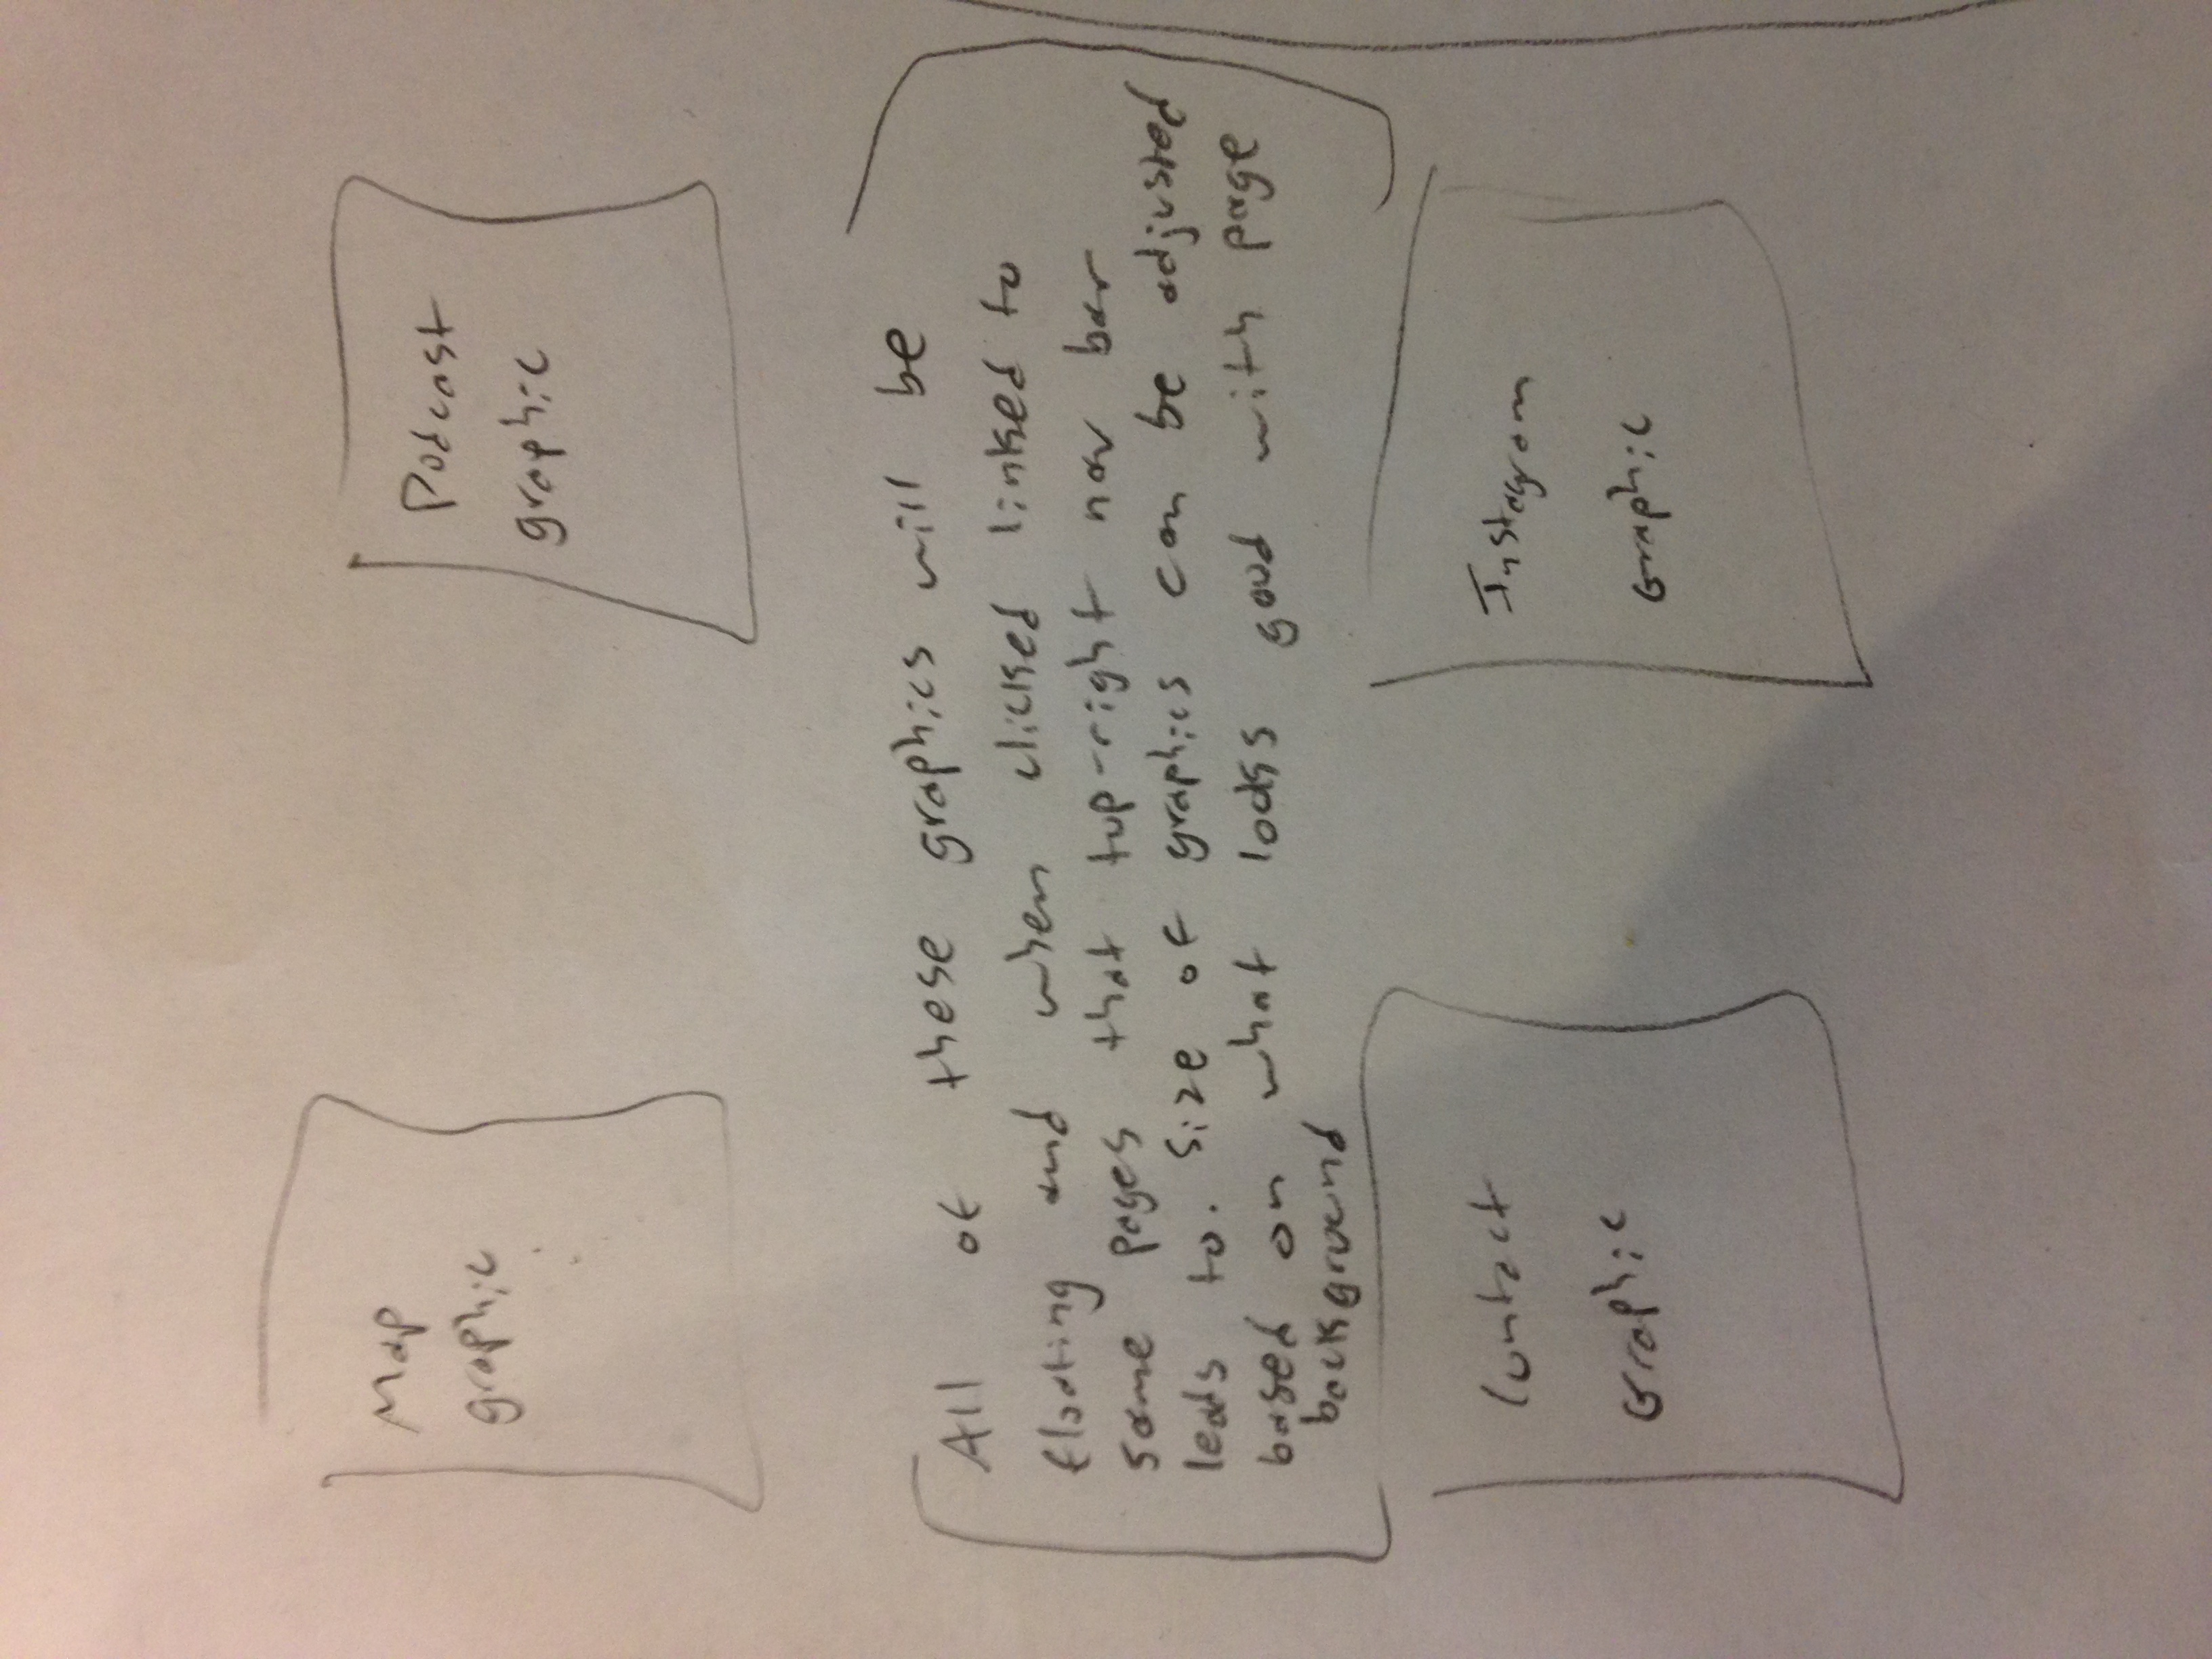 Map
graphic
Podcast
graphic
All of these graphics will be
floating and when clicked linked to
same pages that top-right nav bar
leads to. Size of graphics can be adjusted
based on what looks good with page
background
Contact
Graphic
Instagram
Graphic